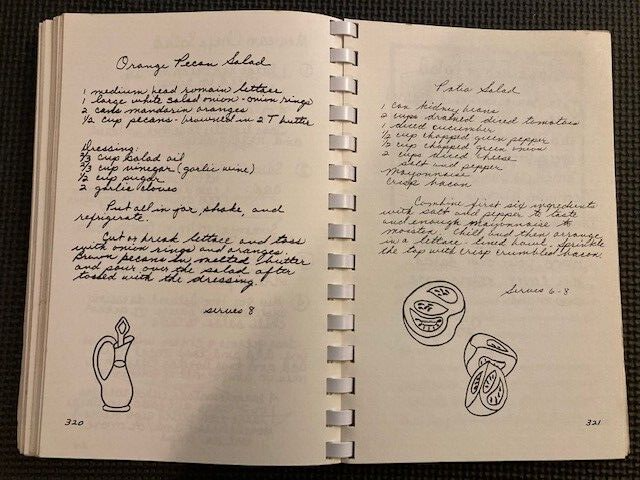 Orange Pecan Salad
1 medium head romain lettuce
1 large white salad onion - onion rings
2 cans mandarin oranges
1/2 cup pecans - browned in 2 T butter
Dressing:
2/3 cup salad oil
2/3 cup vinegar (garlic wine)
1/2 cup sugar
2 garlic cloves
Put all in jar, shake, and
refrigerate.
Cut or break lettuce and toss
with onion rings and oranges.
Brown pecans in melted butter
and pour over the salad after
tossed with the dressing.
serves 8
320
Patio Salad
1 can kidney beans
2 cups drained diced tomatoes
1 diced cucumber
1/2 cup chopped green pepper
1/2 cup chopped green onion
2 cups diced cheese
salt and pepper
Mayonnaise
Crisp bacon
Combine first six ingredients
with salt and pepper to taste
and enough mayonnaise to
moisten. Chill and then arrange
in a lettuce-lined bowl. Sprinkle
the top with crisp crumbled bacon.
Serves 6-8
321